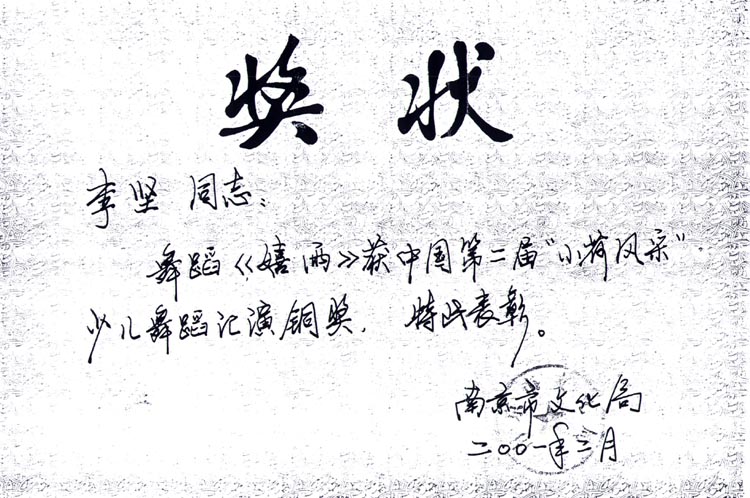 奖状
李坚 同志：
舞蹈《嬉雨》获中国第二届“小荷风采”
少儿舞蹈汇演铜奖，特此表彰。
南京市文化局
二〇〇一年二月